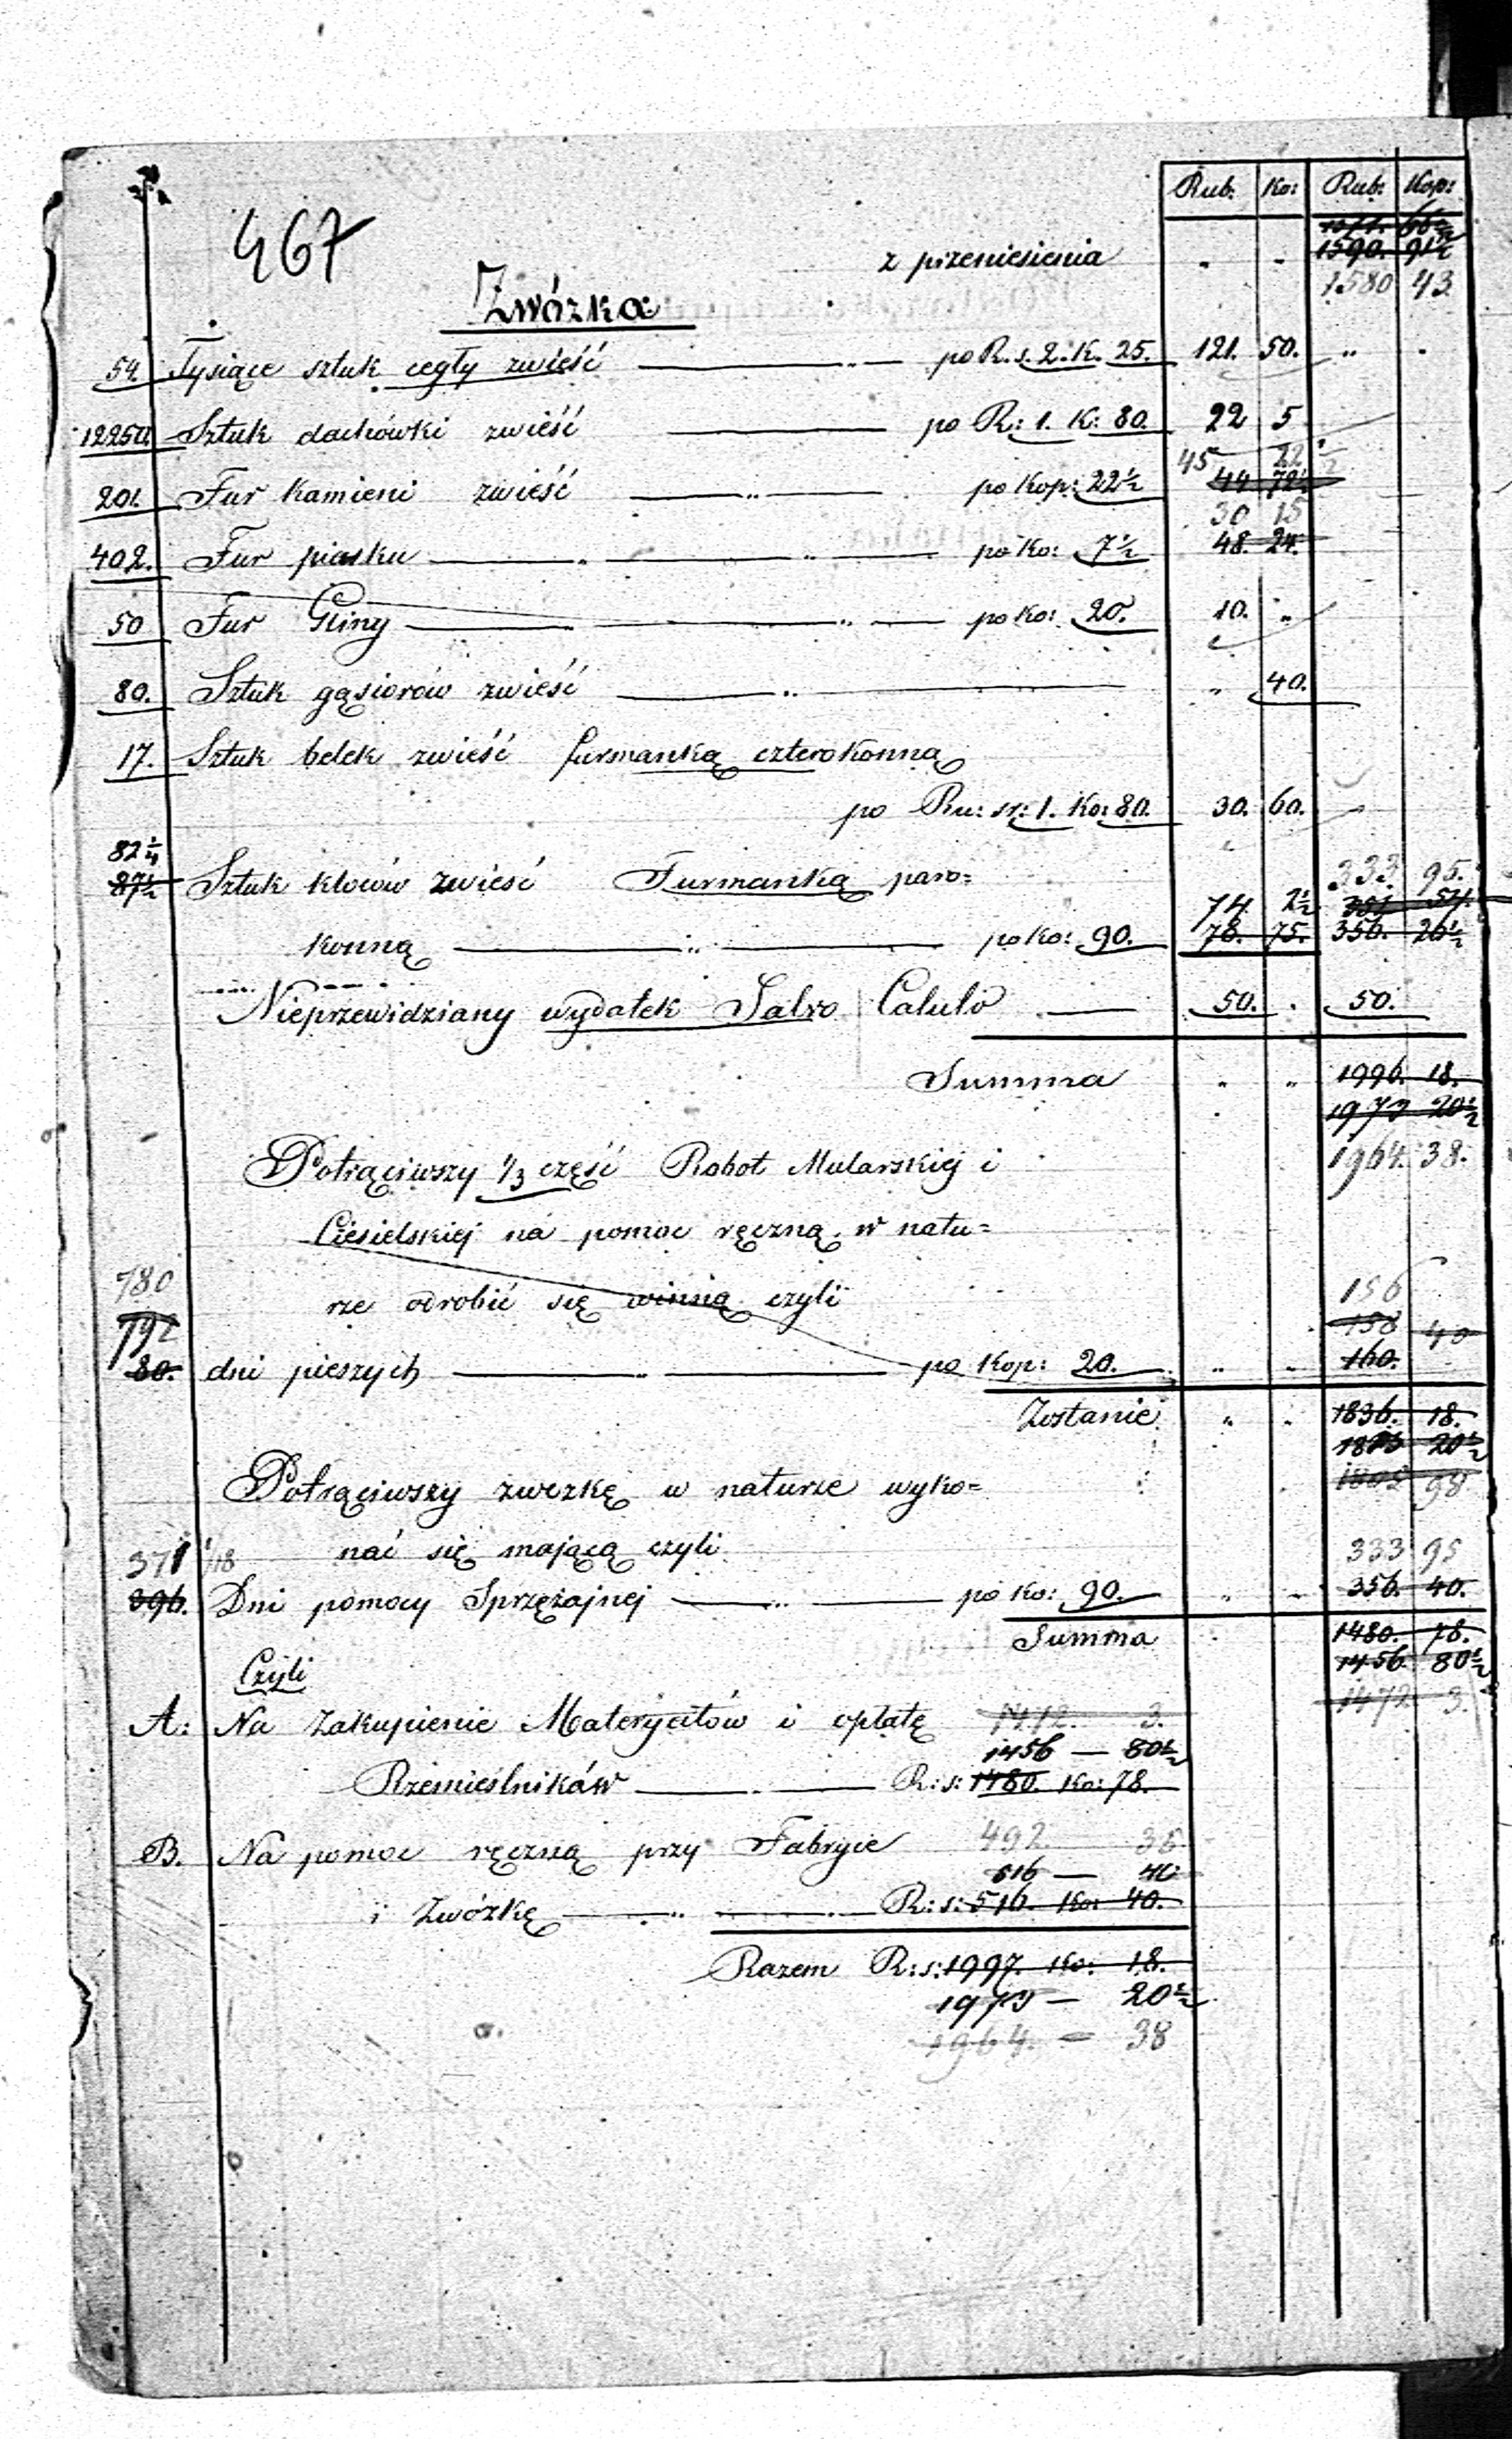 Rub. Ko: Rub: Kop:
467
1590. 91½
z przeniesienia " " 1580 43
Zwózka
54. Tysiące sztuk cegły zwieść po R. s. 2. K. 25. 121. 50. "
12250. Sztuk dachówki zwieść po R: 1. K: 80. 22 5
45 22½
201. Fur Kamieni zwieść po Kop: 22½ 44 72½
30 15
402. Fur piasku po Ko: 7½ 48. 24.
50 Fur Gliny po ko: 20. 10. "
80. Sztuk gąsiorów zwieść " 40.
17. Sztuk belek zwieść furmanką czterokonną
po Ru: sr: 1. Ko: 80. 30. 60.
82¼ 333 95.
87½ Sztuk kloców zwieść Furmanką paro=
74 2½ 351 54
konną po ko: 90. 78. 75. 356. 26½
Nieprzewidziany wydatek Salvo Calulo 50. 50.
Summa " " 1996. 18.
1973 20½
1964. 38.
Potrąciwszy 1/3 część Robot Mularskiej i
Ciesielskiej na pomoc ręczną w natu=
780 156
rze odrobić się winną czyli
792 158 40
80. dni pieszych po Kop: 20. " " 160.
Zostanie " " 1836. 18.
20½
98
Potrąciwszy zwózkę w naturze wyko=
371 1/18 nać się mającą czyli 333 95
396. Dni pomocy Sprzężajnej po ko: 90. " " 356. 40.
Summa 1480. 78.
1456 80½
Czyli 1472 3.
A: Na Zakupienie Materyałów i opłatę 1472. 3.
1456 — 80½
Rzemieślników R: s: 1480. Ko: 78.
B. Na pomoc ręczną przy Fabryce 492
516 — 40
i Zwózkę R: s: 516. Ko: 40.
Razem R: s: 1997. Ko: 18.
1973 — 20½
1964. = 38